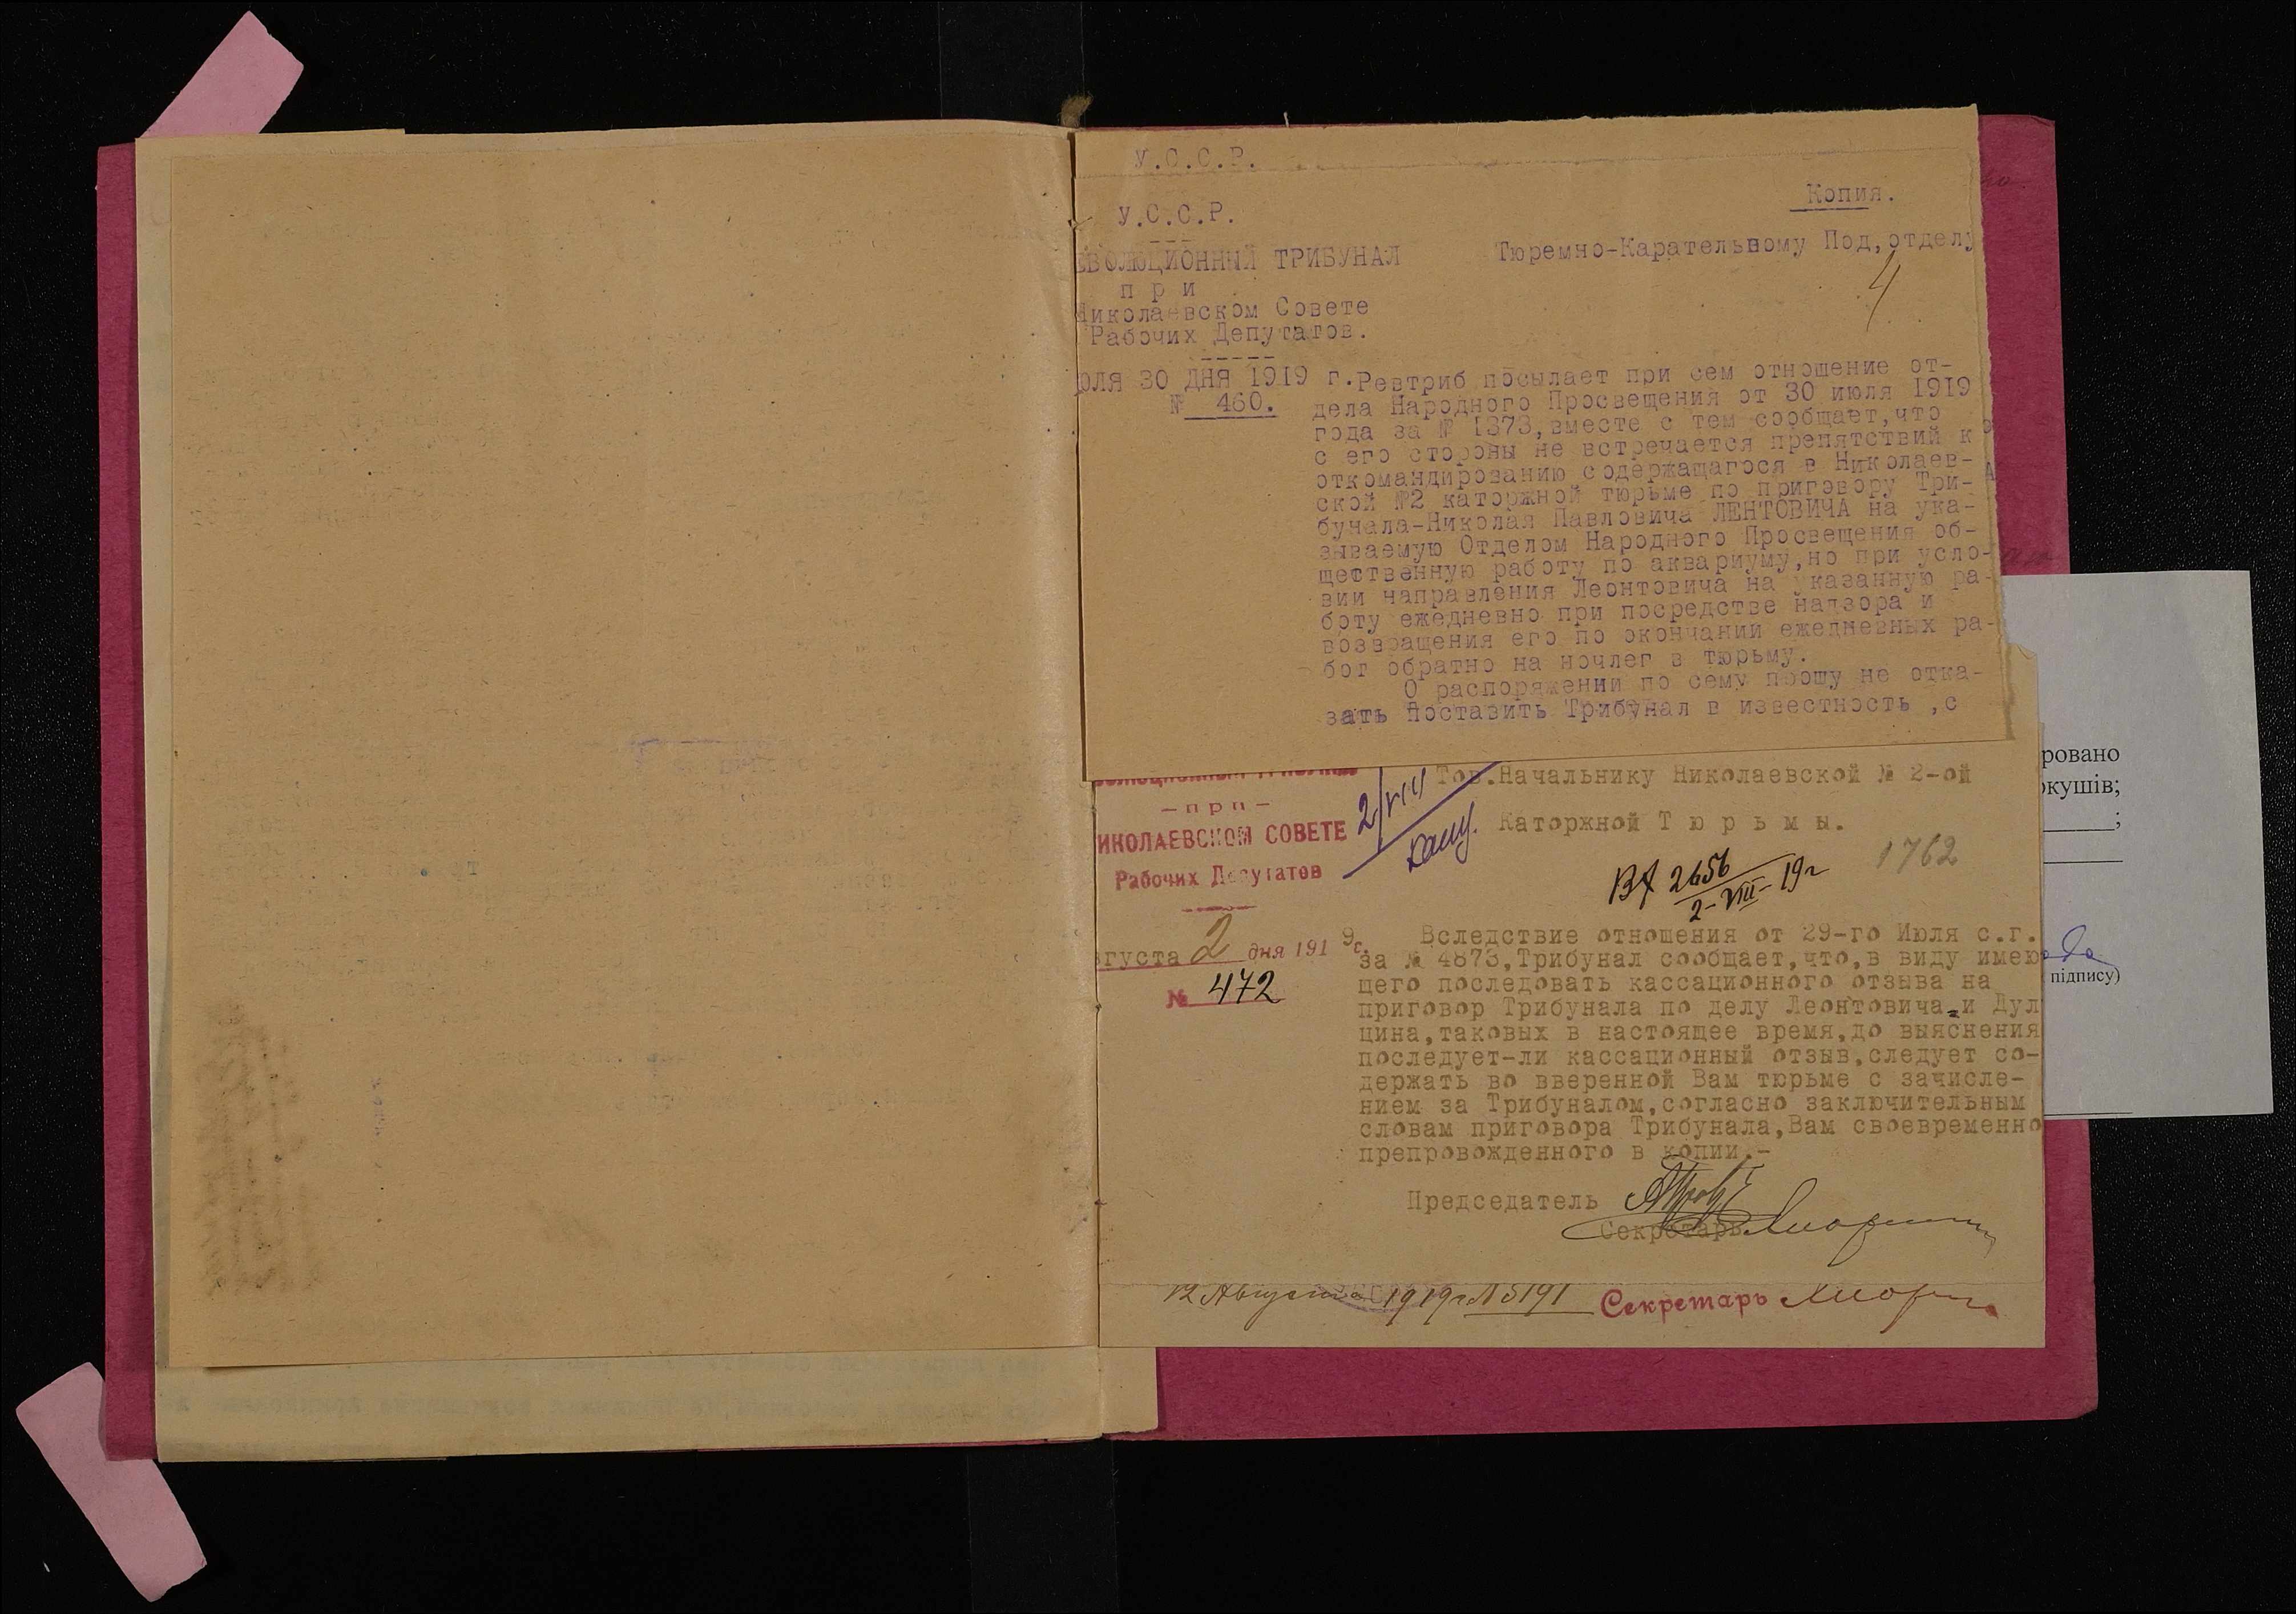 У.С.С.Р.
Копия.
У.С.С.Р.
ЕВОЛЮЦИОННЫЙ ТРИБУНАЛ
Тюремно-Карательному Под,отделу
4
п р и
Николаевском Совете
Рабочих Депутатов.
юля 30 дня 1919 г.
№ 460.
Ревтриб посылает при сем отношение от-
дела Народного Просвещения от 30 июля 1919
года за № 1373,вместе с тем сообщает,что
с его стороны не встречается препятствий к
откомандированию содержащагося в Николаев-
ской №2 каторжной тюрьме по приговору Три-
бунала-Николая Павловича ЛЕНТОВИЧА на ука-
зываемую Отделом Народного Просвещения об-
щественную работу по аквариуму,но при усло-
вии направления Леонтовича на указанную ра-
боту ежедневно при посредстве надзора и
возвращения его по окончании ежедневных ра-
бот обратно на ночлег в тюрьму.
О распоряжении по сему прошу не отка-
зать поставить Трибунал в известность ,с
Тов.Начальнику Николаевской № 2-ой
Каторжной Т ю р ь м ы.
– п р и –
ИКОЛАЕВСКОМ СОВЕТЕ
Рабочих Депутатов
2/VIII
1762
Вх 2656
2-VIII-19г
вгуста 2 дня 1919 г.
№ 472
Вследствие отношения от 29-го Июля с.г.
за № 4873,Трибунал сообщает,что,в виду имею
щего последовать кассационного отзыва на
приговор Трибунала по делу Леонтовича и Дул
цина,таковых в настоящее время,до выяснения
последует-ли кассационный отзыв,следует со-
держать во вверенной Вам тюрьме с зачисле-
нием за Трибуналом,согласно заключительным
словам приговора Трибунала,Вам своевременно
препровожденного в копии.-
Председатель
Секретарь
12 Августа 1919 г. № 5191
Секретарь
ровано
окушів;
підпису)